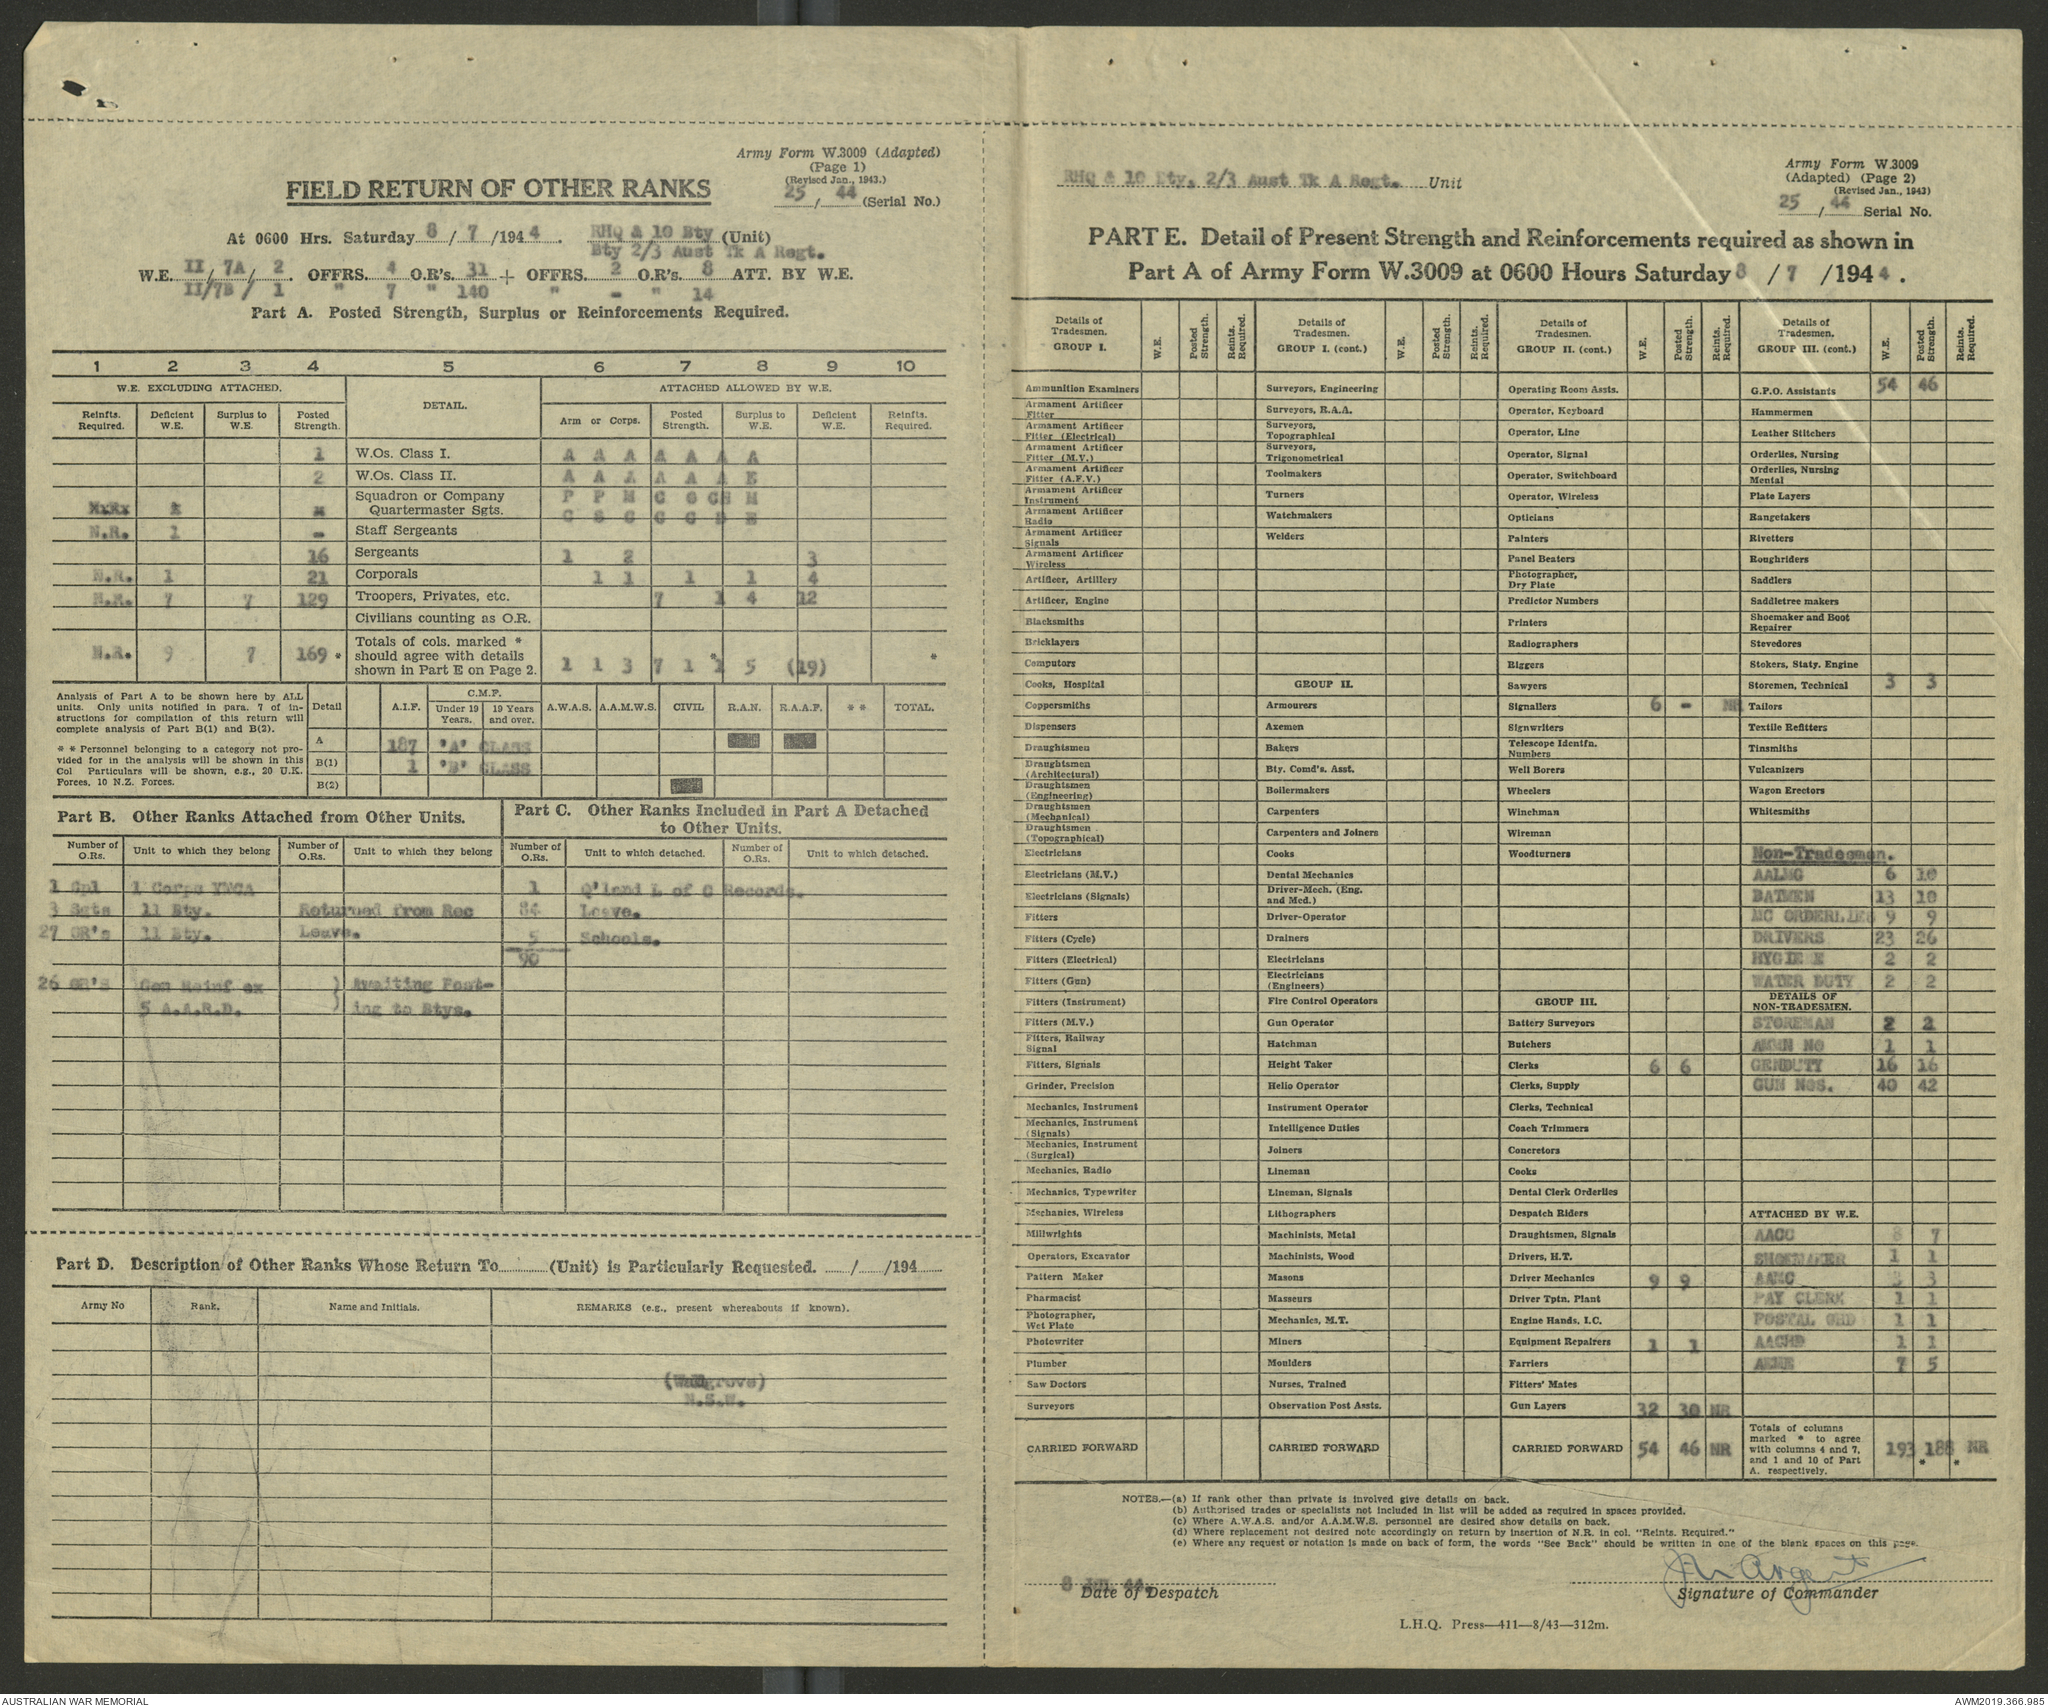 Army Form W.3009 (Adapted)
(Page 1)
(Revised Jan., 1943.)
25 / 44 (Serial No.)
FIELD RETURN OF OTHER RANKS
At 0600 Hrs. Saturday 8 / 7 /1944. RHQ & 10 Bty (Unit)
Bty 2/3 Aust Tk A Regt.
W.E. II / 7A / 2. OFFRS. 4 O.R's. 31 + OFFRS. 2 O.R's. 8 ATT. BY W.E.
II/7B / 1 " 7 " 140 " - " 14
Part A. Posted Strength, Surplus or Reinforcements Required.
1 2 3 4 5 6 7 8 9 10
W.E. EXCLUDING ATTACHED. DETAIL. ATTACHED ALLOWED BY W.E.
Reinfts. Required. Deficient W.E. Surplus to W.E. Posted Strength. Arm or Corps. Posted Strength. Surplus to W.E. Deficient W.E. Reinfts. Required.
1 W.Os. Class I. A A A A A A A
2 W.Os. Class II. A A A A A A E
Squadron or Company Quartermaster Sgts. P P M C O CH M
C S C C C D E
N.R. 1 - Staff Sergeants
16 Sergeants 1 2 3
N.R. 1 21 Corporals 1 1 1 1 4
N.R. 7 7 129 Troopers, Privates, etc. 7 1 4 12
Civilians counting as O.R.
N.R. 9 7 169 * Totals of cols. marked * should agree with details shown in Part E on Page 2. 1 1 3 7 1 1 * 5 (19) *
Analysis of Part A to be shown here by ALL units. Only units notified in para. 7 of instructions for compilation of this return will complete analysis of Part B(1) and B(2).
* * Personnel belonging to a category not provided for in the analysis will be shown in this Col Particulars will be shown, e.g., 20 U.K. Forces, 10 N.Z. Forces.
Detail A.I.F. C.M.F. Under 19 Years. 19 Years and over. A.W.A.S. A.A.M.W.S. CIVIL R.A.N. R.A.A.F. * * TOTAL.
A 187 "A" CLASS
B(1) 1 "B" CLASS
B(2)
Part B. Other Ranks Attached from Other Units.
Part C. Other Ranks Included in Part A Detached to Other Units.
Number of O.Rs. Unit to which they belong Number of O.Rs. Unit to which they belong Number of O.Rs. Unit to which detached. Number of O.Rs. Unit to which detached.
1 Cpl 1 Corps YMCA 1 Q'land L of C Records.
3 Sgts 11 Bty. Returned from Rec 84 Leave.
27 OR's 11 Bty. Leave. 5 Schools.
90
26 OR'S Gen Reinf ex } Awaiting Post-
5 A.A.R.D. } ing to Btys.
Part D. Description of Other Ranks Whose Return To (Unit) is Particularly Requested. / /194
Army No Rank. Name and Initials. REMARKS (e.g., present whereabouts if known).
(Wallgrove)
N.S.W.
RHQ & 10 Bty, 2/3 Aust Tk A Regt. Unit
Army Form W.3009
(Adapted) (Page 2)
(Revised Jan., 1943)
25 / 44 Serial No.
PART E. Detail of Present Strength and Reinforcements required as shown in
Part A of Army Form W.3009 at 0600 Hours Saturday 8 / 7 /1944.
Details of Tradesmen. GROUP I. W.E. Posted Strength. Reints. Required. Details of Tradesmen. GROUP I. (cont.) W.E. Posted Strength. Reints. Required. Details of Tradesmen. GROUP II. (cont.) W.E. Posted Strength. Reints. Required. Details of Tradesmen. GROUP III. (cont.) W.E. Posted Strength. Reints. Required.
Ammunition Examiners Surveyors, Engineering Operating Room Assts. G.P.O. Assistants 54 46
Armament Artificer Fitter Surveyors, R.A.A. Operator, Keyboard Hammermen
Armament Artificer Fitter (Electrical) Surveyors, Topographical Operator, Line Leather Stitchers
Armament Artificer Fitter (M.V.) Surveyors, Trigonometrical Operator, Signal Orderlies, Nursing
Armament Artificer Fitter (A.F.V.) Toolmakers Operator, Switchboard Orderlies, Nursing Mental
Armament Artificer Instrument Turners Operator, Wireless Plate Layers
Armament Artificer Radio Watchmakers Opticians Rangetakers
Armament Artificer Signals Welders Painters Rivetters
Armament Artificer Wireless Panel Beaters Roughriders
Artificer, Artillery Photographer, Dry Plate Saddlers
Artificer, Engine Predictor Numbers Saddletree makers
Blacksmiths Printers Shoemaker and Boot Repairer
Bricklayers Radiographers Stevedores
Computors Riggers Stokers, Staty. Engine
Cooks, Hospital GROUP II. Sawyers Storemen, Technical 3 3
Coppersmiths Armourers Signallers 6 - NR Tailors
Dispensers Axemen Signwriters Textile Refitters
Draughtsmen Bakers Telescope Identfn. Numbers Tinsmiths
Draughtsmen (Architectural) Bty. Comd's. Asst. Well Borers Vulcanizers
Draughtsmen (Engineering) Boilermakers Wheelers Wagon Erectors
Draughtsmen (Mechanical) Carpenters Winchman Whitesmiths
Draughtsmen (Topographical) Carpenters and Joiners Wireman
Electricians Cooks Woodturners Non-Tradesmen.
Electricians (M.V.) Dental Mechanics AALMG 6 10
Electricians (Signals) Driver-Mech. (Eng. and Med.) BATMEN 13 10
Fitters Driver-Operator MC ORDERLIES 9 9
Fitters (Cycle) Drainers DRIVERS 23 26
Fitters (Electrical) Electricians HYGIENE 2 2
Fitters (Gun) Electricians (Engineers) WATER DUTY 2 2
Fitters (Instrument) Fire Control Operators GROUP III. DETAILS OF NON-TRADESMEN.
Fitters (M.V.) Gun Operator Battery Surveyors STOREMAN 2 2
Fitters, Railway Signal Hatchman Butchers AMMN NO 1 1
Fitters, Signals Height Taker Clerks 6 6 GENDUTY 16 16
Grinder, Precision Helio Operator Clerks, Supply GUN NOS. 40 42
Mechanics, Instrument Instrument Operator Clerks, Technical
Mechanics, Instrument (Signals) Intelligence Duties Coach Trimmers
Mechanics, Instrument (Surgical) Joiners Concretors
Mechanics, Radio Lineman Cooks
Mechanics, Typewriter Lineman, Signals Dental Clerk Orderlies
Mechanics, Wireless Lithographers Despatch Riders ATTACHED BY W.E.
Millwrights Machinists, Metal Draughtsmen, Signals AACC 8 7
Operators, Excavator Machinists, Wood Drivers, H.T. SHOEMAKER 1 1
Pattern Maker Masons Driver Mechanics 9 9 AAMC 3 3
Pharmacist Masseurs Driver Tptn. Plant PAY CLERK 1 1
Photographer, Wet Plate Mechanics, M.T. Engine Hands, I.C. POSTAL ORD 1 1
Photowriter Miners Equipment Repairers 1 1 AACHD 1 1
Plumber Moulders Farriers AEME 7 5
Saw Doctors Nurses, Trained Fitters' Mates
Surveyors Observation Post Assts. Gun Layers 32 30 NR
CARRIED FORWARD CARRIED FORWARD CARRIED FORWARD 54 46 NR Totals of columns marked * to agree with columns 4 and 7, and 1 and 10 of Part A. respectively. 193 188 * NR *
NOTES.—(a) If rank other than private is involved give details on back.
(b) Authorised trades or specialists not included in list will be added as required in spaces provided.
(c) Where A.W.A.S. and/or A.A.M.W.S. personnel are desired show details on back.
(d) Where replacement not desired note accordingly on return by insertion of N.R. in col. "Reints. Required."
(e) Where any request or notation is made on back of form, the words "See Back" should be written in one of the blank spaces on this page.
8 44.
Date of Despatch
Signature of Commander
L.H.Q. Press—411—8/43—312m.
AUSTRALIAN WAR MEMORIAL
AWM2019.366.985